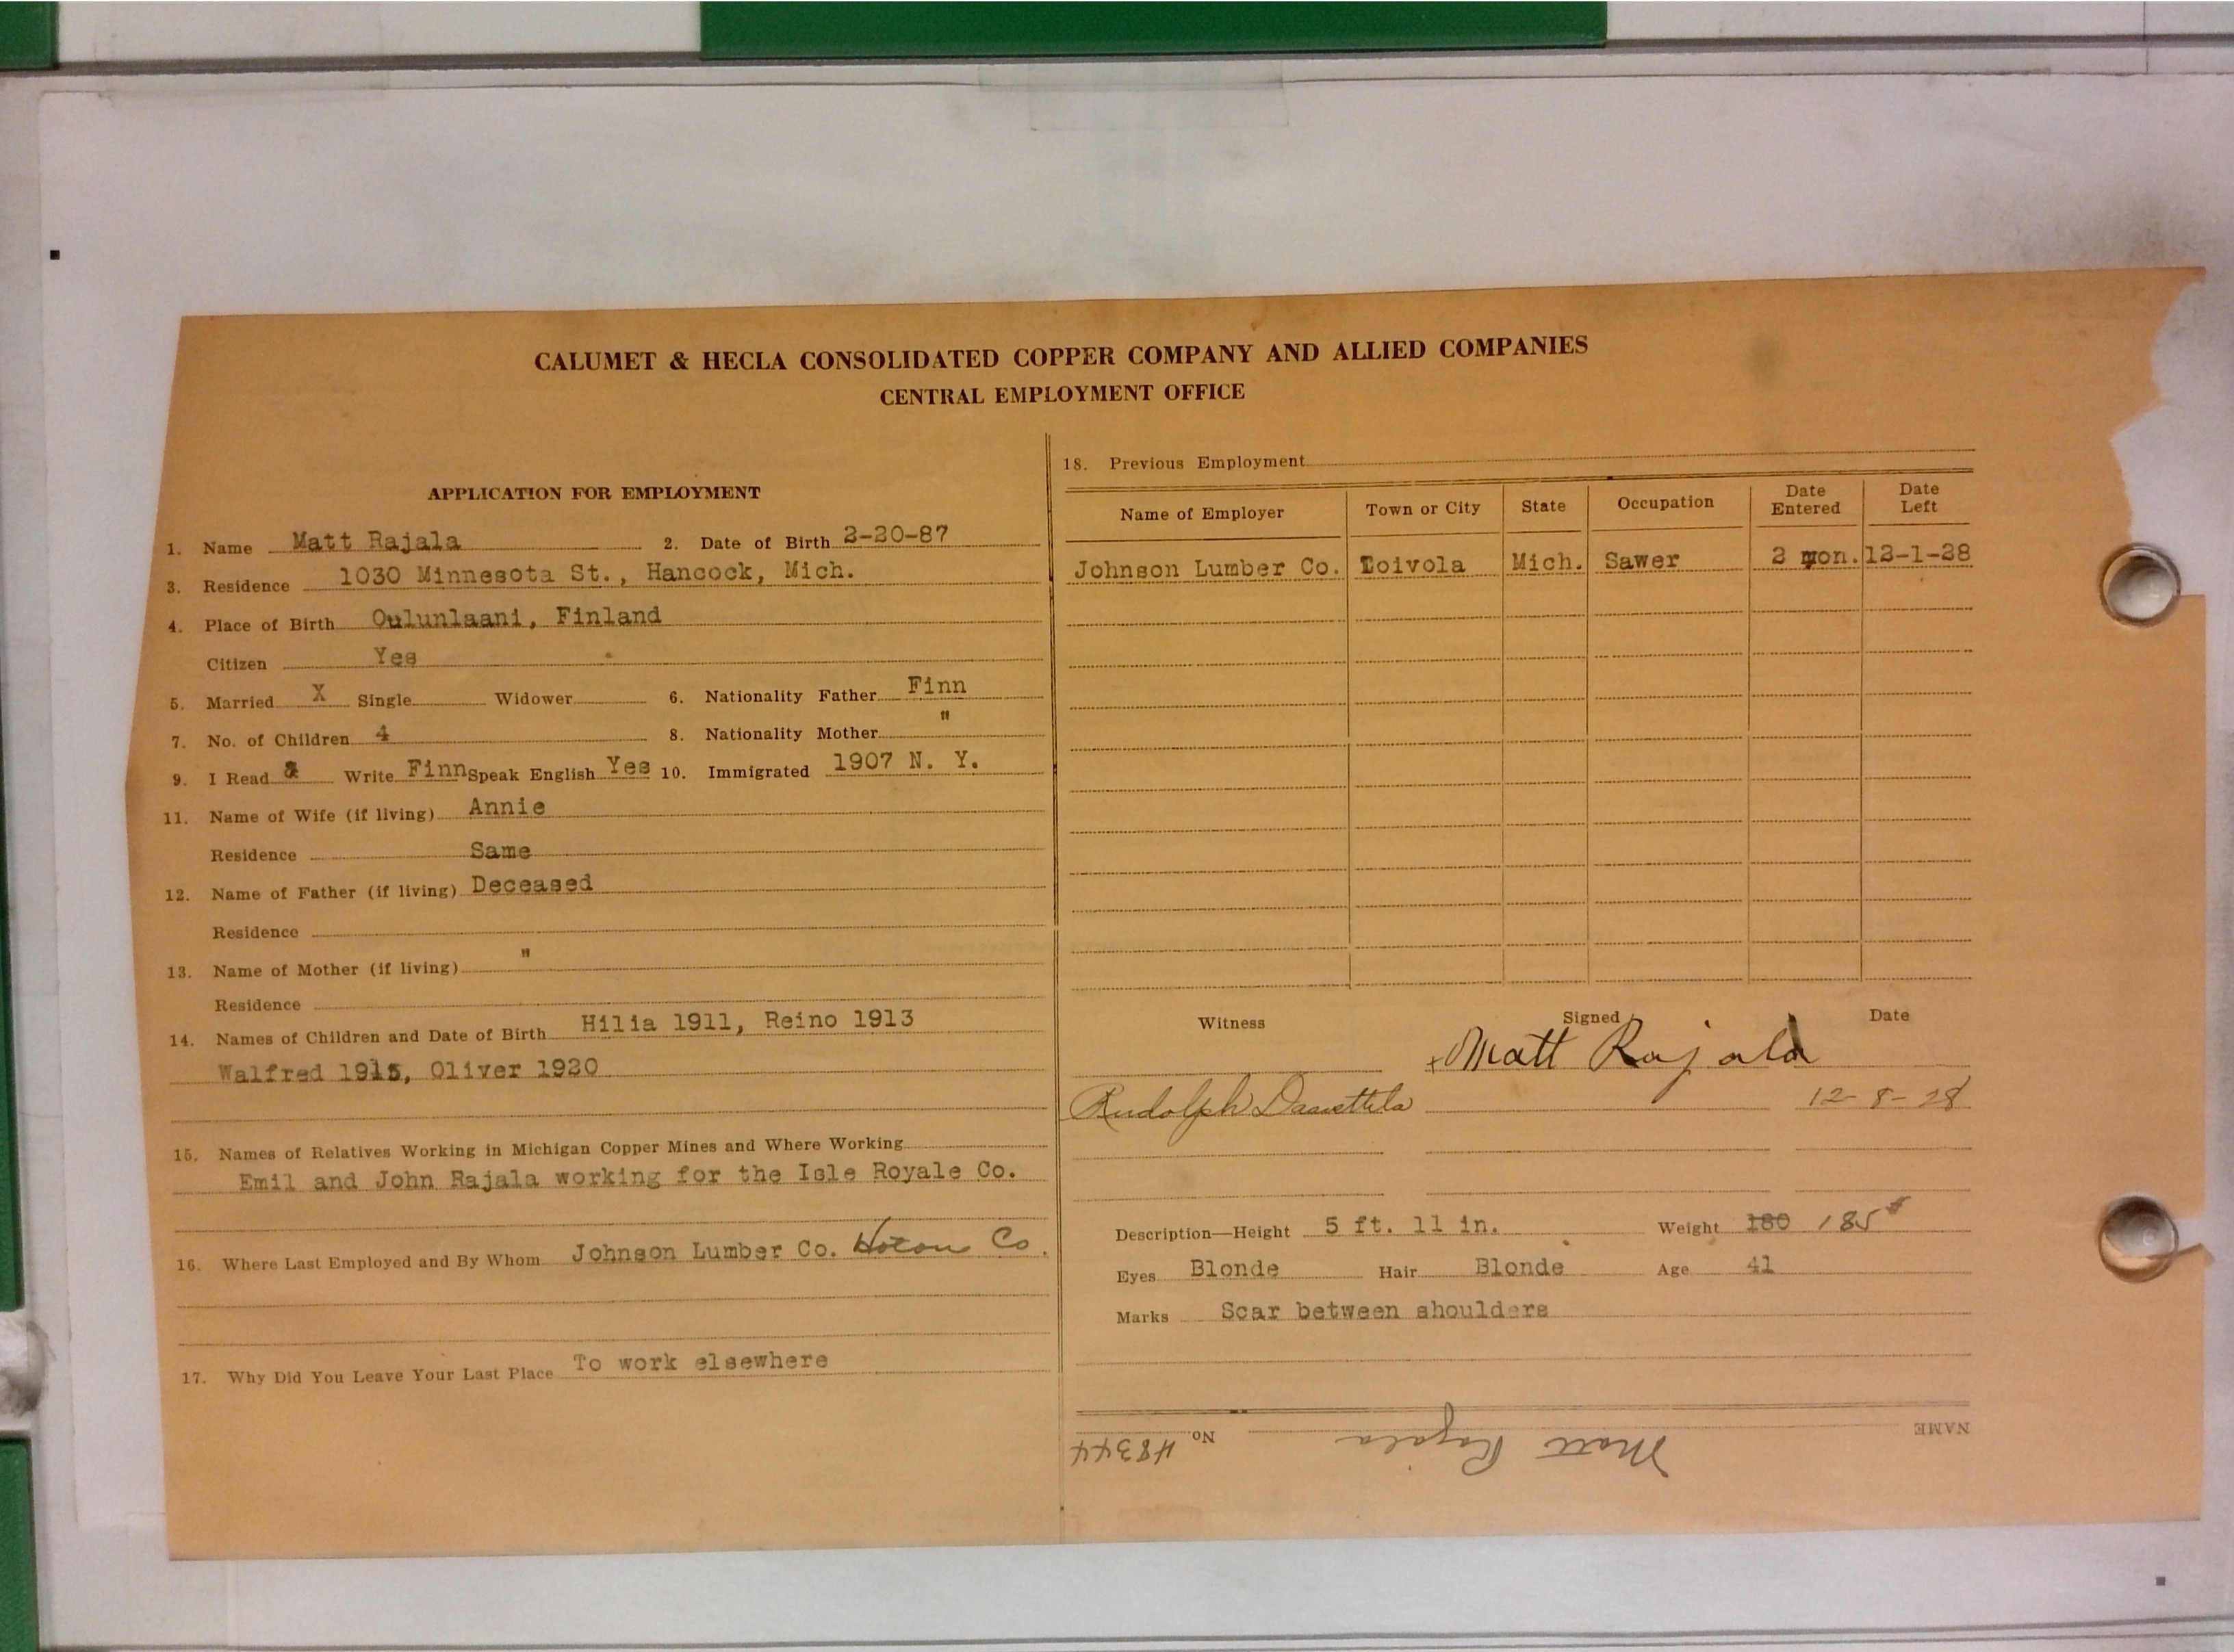 CALUMET & HECLA CONSOLIDATED COPPER COMPANY AND ALLIED COMPANIES
CENTRAL EMPLOYMENT OFFICE
APPLICATION FOR EMPLOYMENT
1. Name Matt Rajala 2. Date of Birth 2-20-87
3. Residence 1030 Minnesota St., Hancock, Mich.
4. Place of Birth Oulunlaani, Finland
Citizen Yes
5. Married X Single Widower 6. Nationality Father Finn
7. No. of Children 4 8. Nationality Mother "
9. I Read & Write Finn Speak English Yes 10. Immigrated 1907 N. Y.
11. Name of Wife (if living) Annie
Residence Same
12. Name of Father (if living) Deceased
Residence
13. Name of Mother (if living) "
Residence
14. Names of Children and Date of Birth Hilia 1911, Reino 1913
Walfred 1915, Oliver 1920
15. Names of Relatives Working in Michigan Copper Mines and Where Working
Emil and John Rajala working for the Isle Royale Co.
16. Where Last Employed and By Whom Johnson Lumber Co. Co.
17. Why Did You Leave Your Last Place To work elsewhere
18. Previous Employment
Name of Employer Town or City State Occupation Date Entered Date Left
Johnson Lumber Co. Toivola Mich. Sawer 2 mon. 12-1-28
Witness Signed Date
x Matt Rajala
Rudolph 12-8-28
Description—Height 5 ft. 11 in. Weight 180 185#
Eyes Blonde Hair Blonde Age 41
Marks Scar between shoulders
NAME Matt Rajala No. 48344